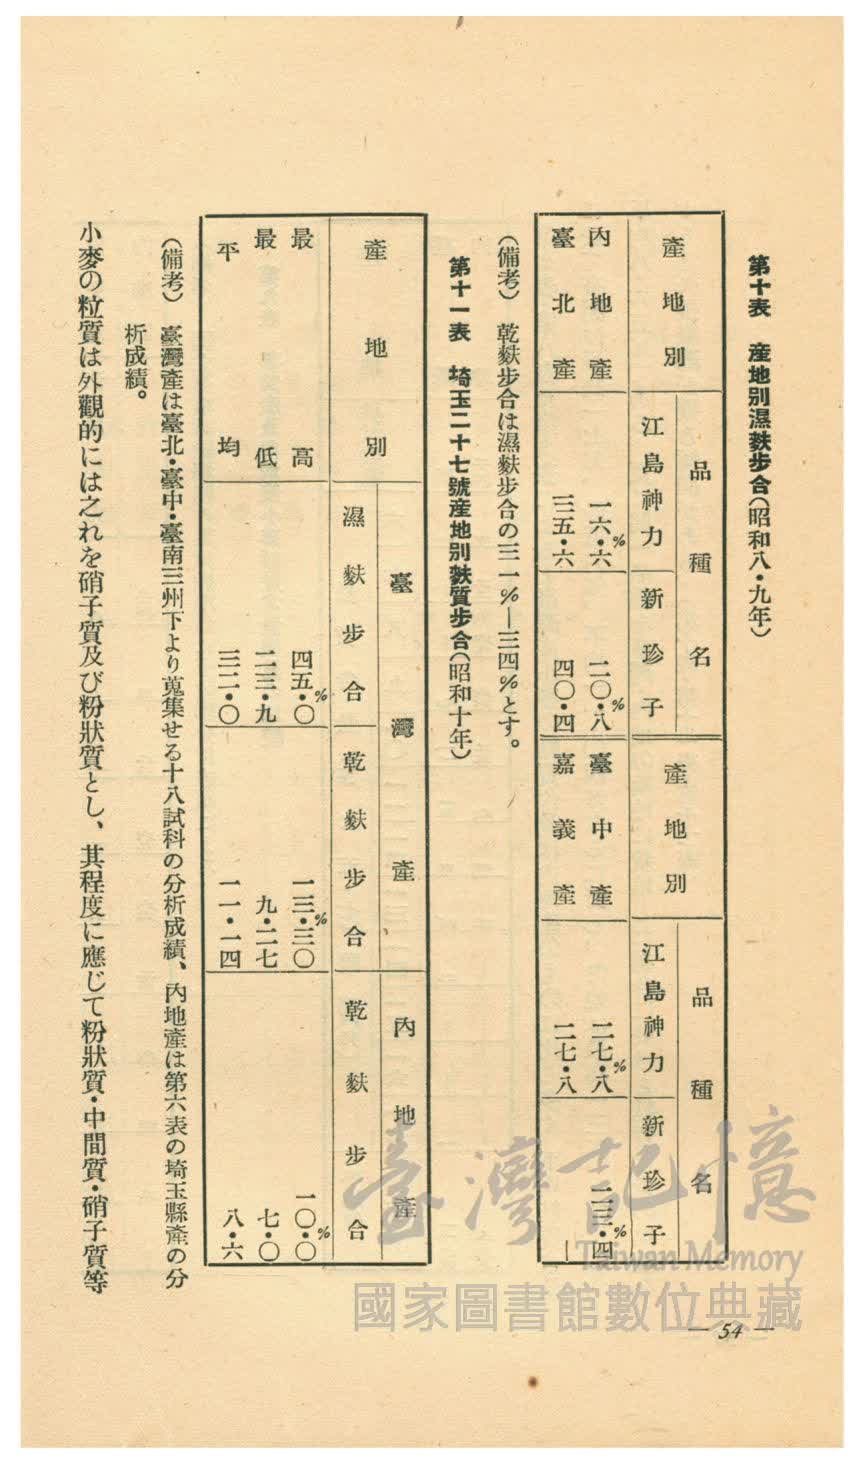 第十表 產地別濕麩步合(昭和八・九年)
產地別 品種名 產地別 品種名
江島神力 新珍子 江島神力 新珍子
內地產 一六・六% 二〇・八% 臺中產 二七・八% 二三・四%
臺北產 三五・六 四〇・四 嘉義產 二七・八 —
(備考) 乾麩步合は濕麩步合の三一%—三四%とす。
第十一表 埼玉二十七號產地別麩質步合(昭和十年)
產地別 臺灣產 內地產
濕麩步合 乾麩步合 乾麩步合
最高 四五・〇% 一三・三〇% 一〇・〇%
最低 二三・九 九・二七 七・〇
平均 三二・〇 一一・一四 八・六
(備考) 臺灣產は臺北・臺中・臺南三州下より蒐集せる十八試科の分析成績、內地產は第六表の埼玉縣產の分
析成績。
小麥の粒質は外觀的には之れを硝子質及び粉狀質とし、其程度に應じて粉狀質・中間質・硝子質等
— 54 —
臺灣記憶
Taiwan Memory
國家圖書館數位典藏